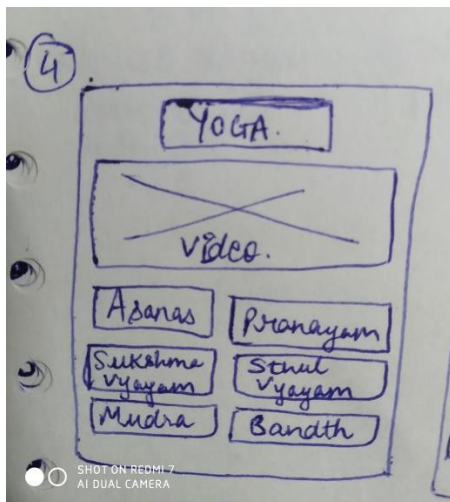 4
YOGA.
Video.
Asanas
Pranayam
Sukshma
Vyayam
Sthul
Vyayam
Mudra
Bandth
SHOT ON REDMI 7
AI DUAL CAMERA